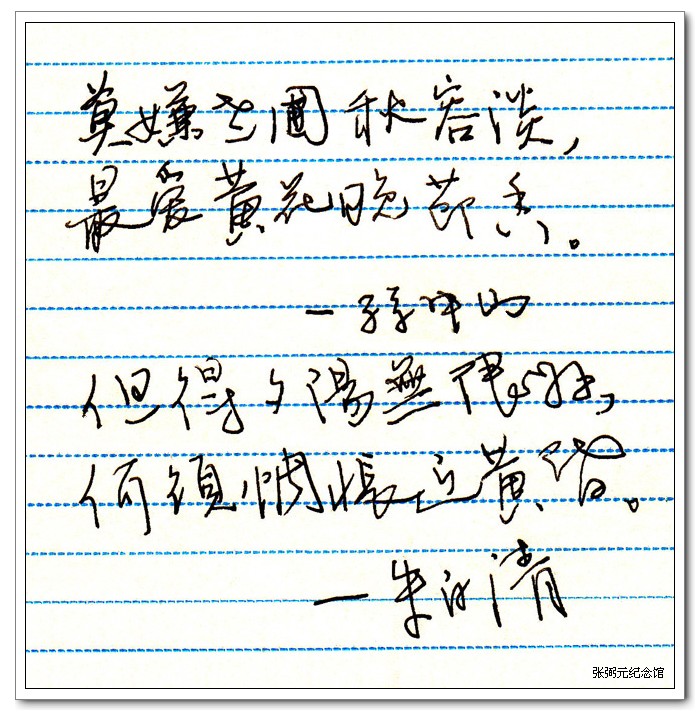 莫嫌老圃秋容淡，
最爱黄花晚节香。
—孫中山
但得夕陽無限好，
何須惆悵近黄昏。
—朱自清
张弼元纪念馆